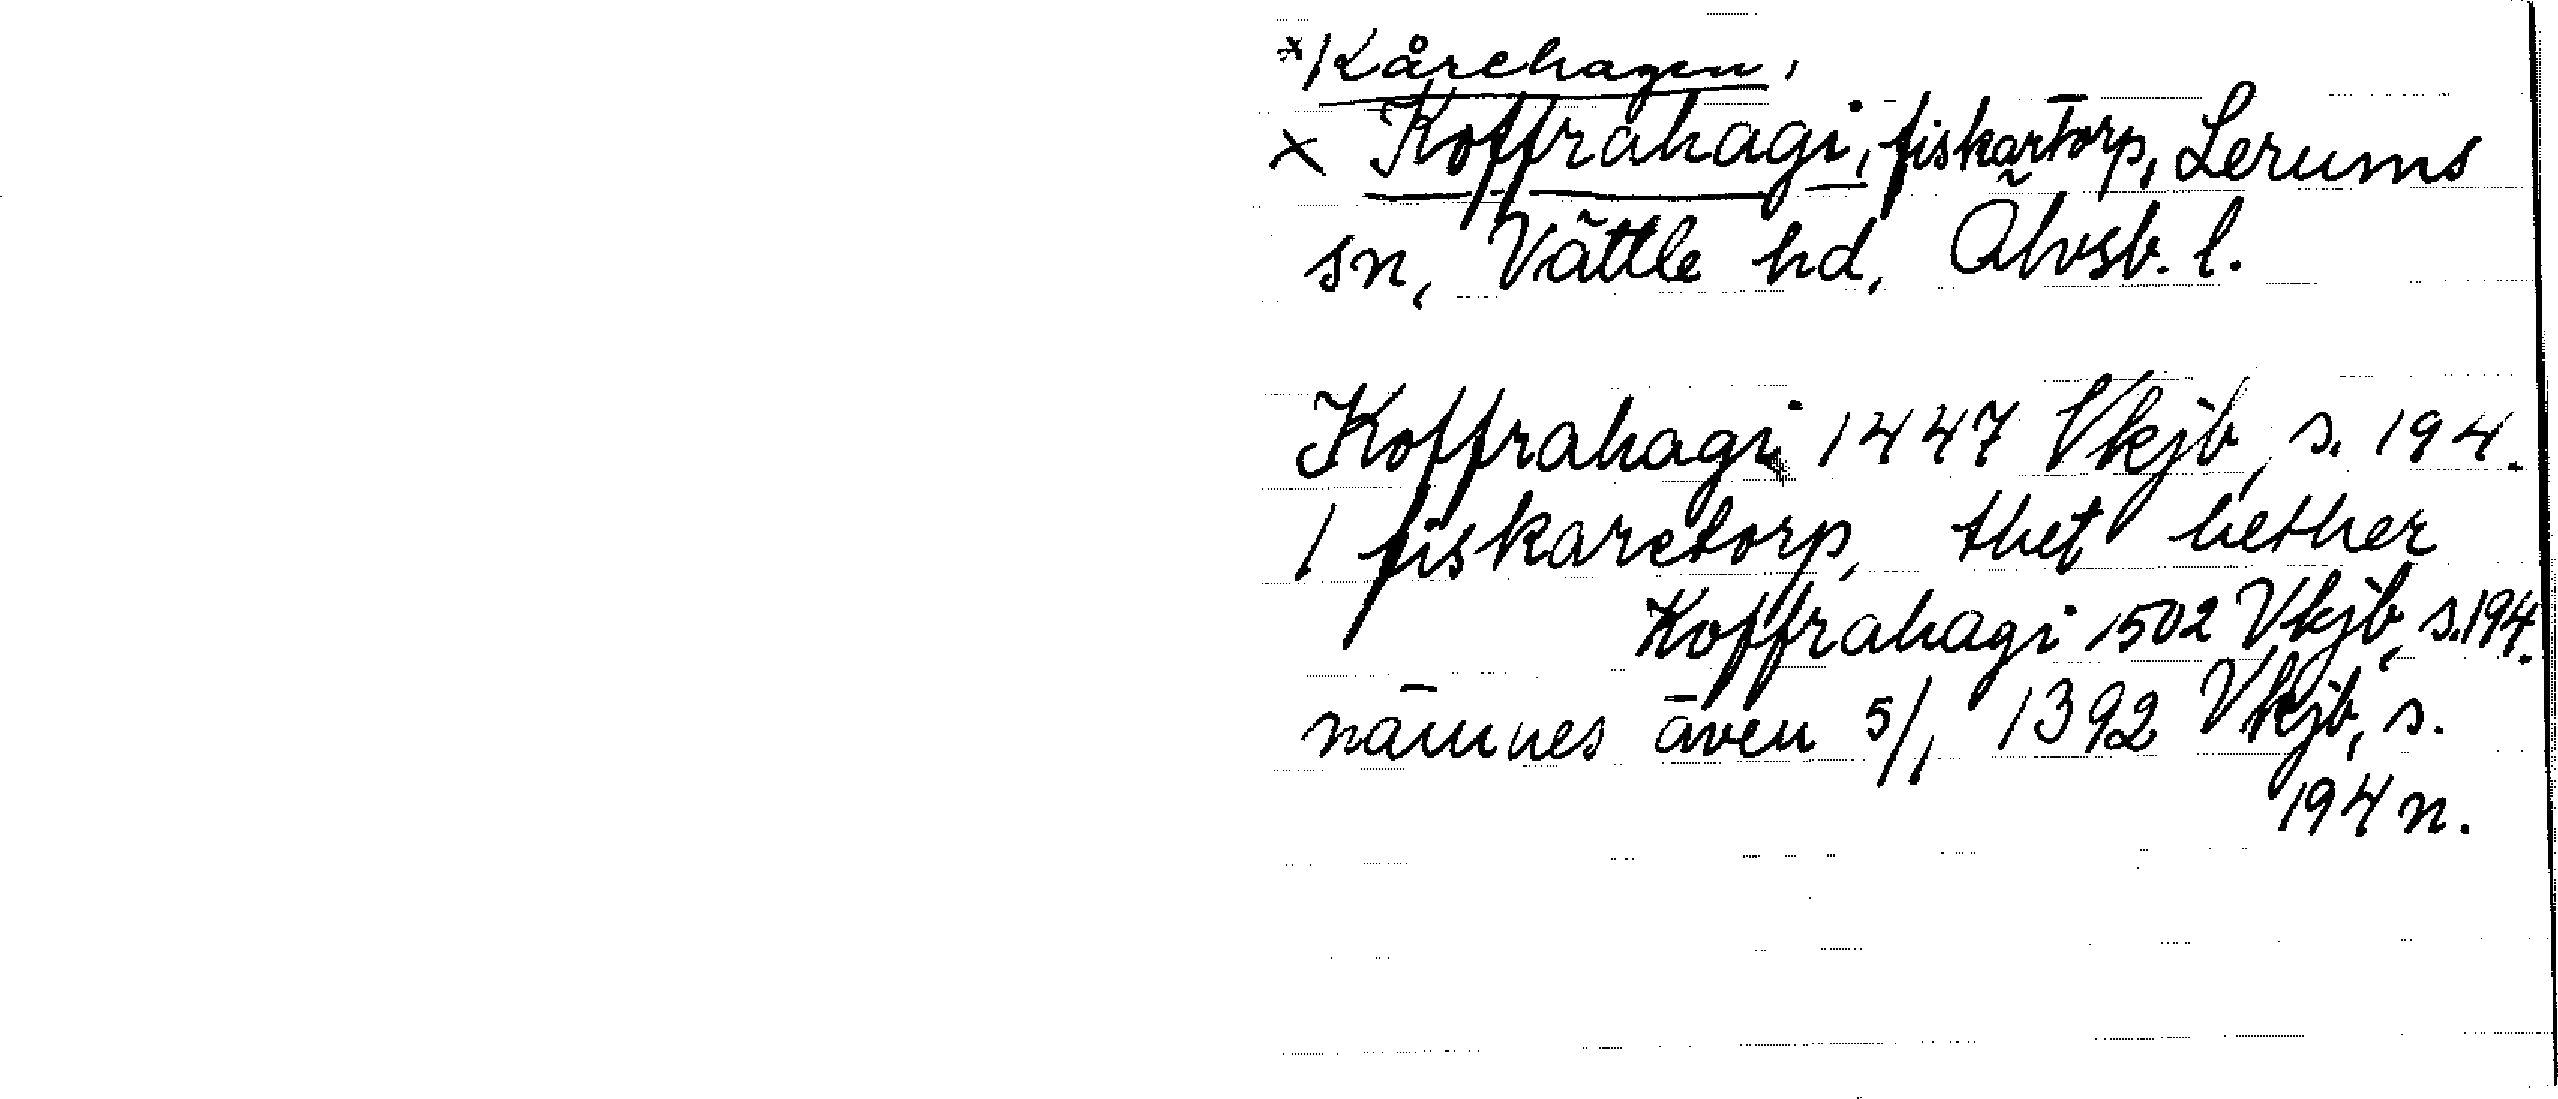 * Kårehagen,
× Koffrahagi, fiskartorp, Lerums
sn, Vättle hd, Älvsb. l.
Koffrahagi 1447 Vkjb, s. 194.
1 fiskaretorp, thet hether
Koffrahagi 1502 Vkjb, s. 194.
nämnes även 5/1 1392 Vkjb, s.
194 n.